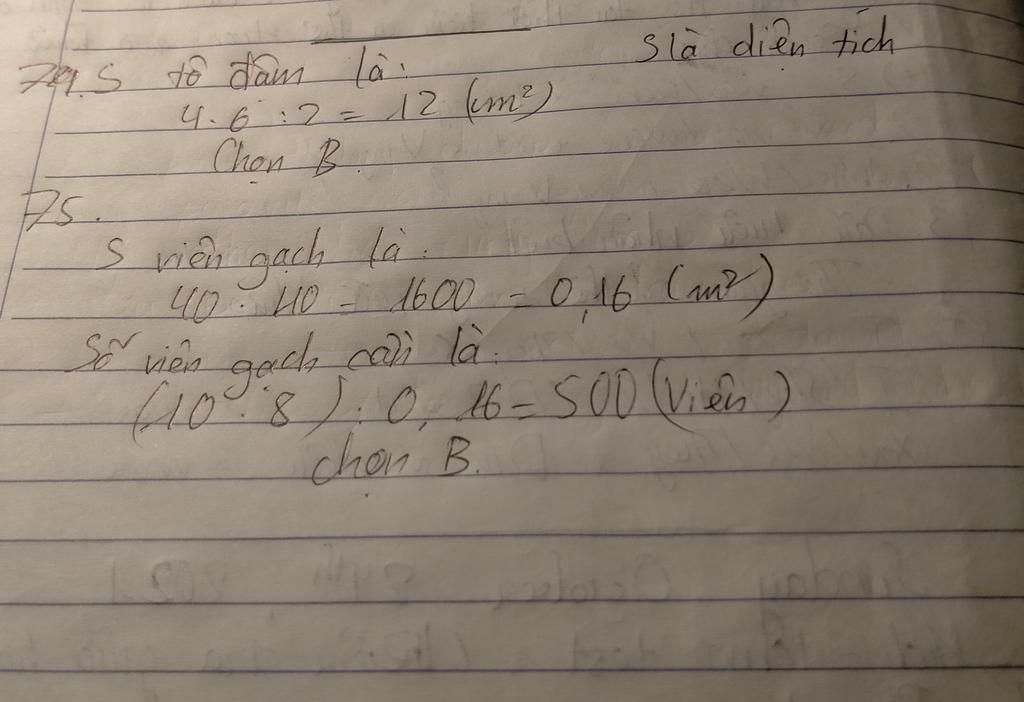 S là diện tích
74. S tô đậm là:
4.6 : 2 = 12 (cm²)
Chọn B.
75.
S viên gạch là:
40 . 40 = 1600 = 0,16 (m²)
Số viên gạch cần là:
(10 . 8) : 0,16 = 500 (Viên)
chọn B.